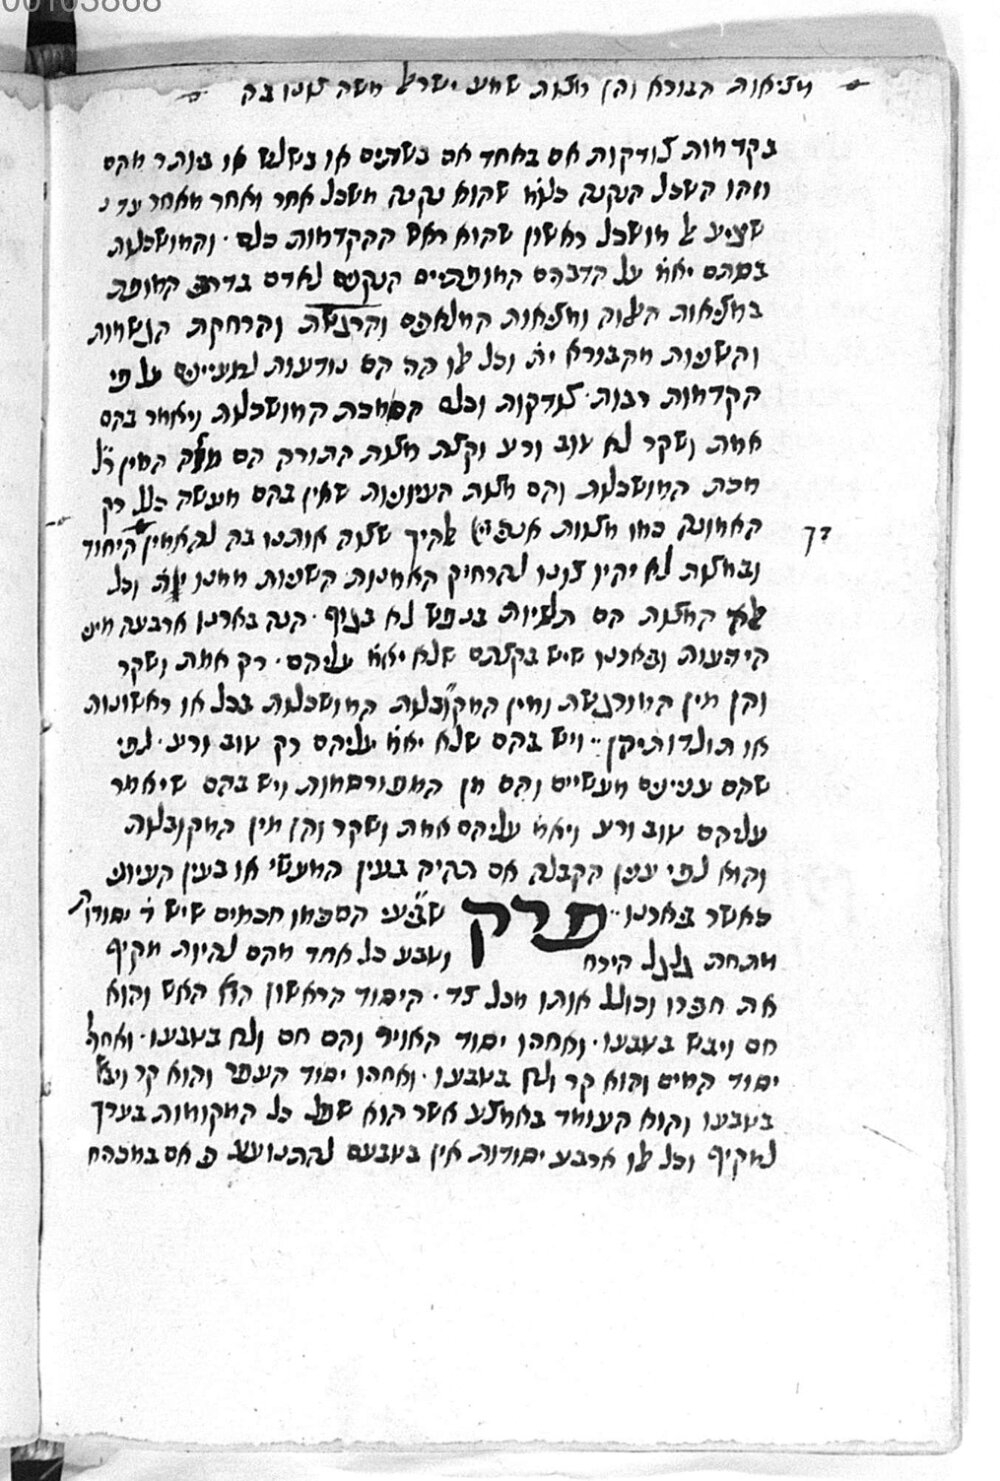 00103868
מציאות הבורא והן מצות שמע ישראל משה צונו בה
בקדמות צודקות אם באחד אם בשתים או בשלש או ביותר מהם
וזהו השכל הנקנה כלומ' שהוא נקנה משכל אחר ואחר מאחר עד
שיגיע למושכל ראשון שהוא ראש ההקדמות כלם . והמושכלות
בסתם יאמ' על הדברים המופתיים הנקנים לאדם בדרך המופת
במציאות האלוה ומציאות המלאכים והרגשת והרחקת הגשמות
והשניות מהבורא ית' וכל אלו הם נודעות למעיינים על פי
הקדמות רבות צודקות וכלם הם מכת המושכלות ויאמר בהם
אמת ושקר לא טוב ורע וקצת מצות התורה הם מזה המין ר"ל
מכת המושכלות והם מצות העיוניות שאין בהם מעשה כלל רק
האמונה כמו מצות אנכי יי' אלהיך שצוה אותנו בה להאמין היחוד
ובמצות לא יהיו צונו להרחיק האמנות השניות ממנו ית' וכל
אלו המצות הם תלויות בנפש לא בגוף . הנה בארנו ארבעה מיני
הידיעות ובארנו שיש בקצתם שלא יאמ' עליהם . רק אמת ושקר
והן מין המורגשת ומין המקובלות המושכלות בכל או ראשונות
או תולדותיהן .. ויש בהם שלא יאמ' עליהם רק טוב ורע . לפי
שהם ענינים מעשיים והם מן המפורסמות ויש בהם שיאמר
עליהם טוב ורע ויאמ' עליהם אמת ושקר והן מין המקובלות
והוא לפי ענין הקבלה אם תהיה בענין המעשי או בענין העיוני
כאשר בארנו .. פרק שביעי הסכמו חכמים שיש ד' יסודות
מתחת גלגל הירח וטבע כל אחד מהם להיות מקיף
את חברו וכולל אותו מכל צד . היסוד הראשון הוא האש והוא
חם ויבש בטבעו . ואחריו יסוד האויר והם חם ולח בטבעו . ואחריו
יסוד המים והוא קר ולח בטבעו . ואחריו יסוד העפר והוא קר ויבש
בטבעו והוא העומד באמצע אשר הוא שפל כל המקומות בערך
למקיף וכל אלו ארבע יסודות אין בטבעם להתנועע כי אם במכרח